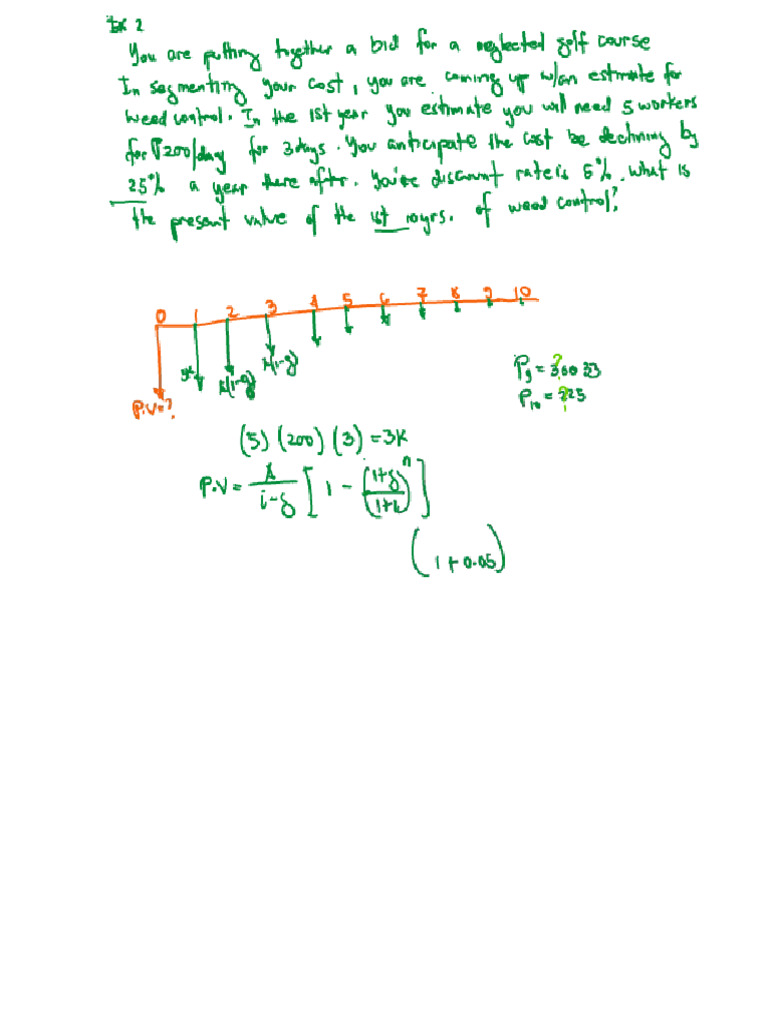 Ex 2
You are putting together a bid for a neglected golf course
In segmenting your cost, you are coming up w/an estimate for
weed control. In the 1st year you estimate you will need 5 workers
for ₱200/day for 3 days. You anticipate the cost be declining by
25% a year there after. You're discount rate is 5%. What is
the present value of the 1st 10yrs. of weed control?
0 1 2 3 4 5 6 7 8 9 10
3K
A(1-g)
A(1-g)
P.V=?
P9 = 300.33
P10 = 225
?
?
(5) (200) (3) = 3K
P.V = A/(i-g) [1 - ((1+g)/(1+i))^n]
(1+0.05)